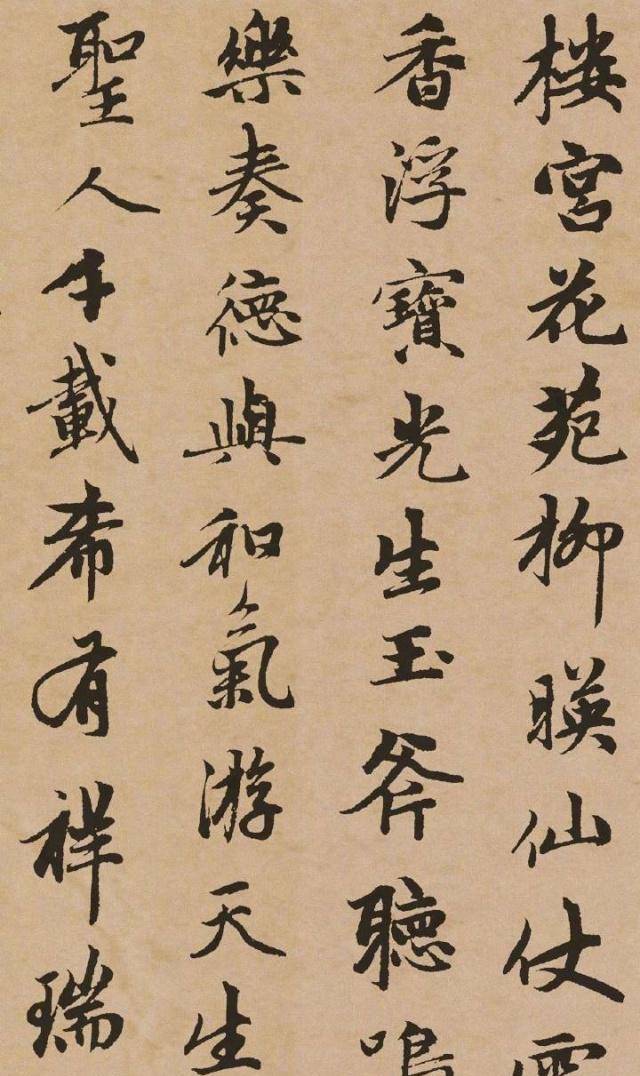 楼宮花苑柳暎仙仗
香浮寶光生玉斧聽鳴
樂奏德與和氣游天生
聖人千載希有祥瑞